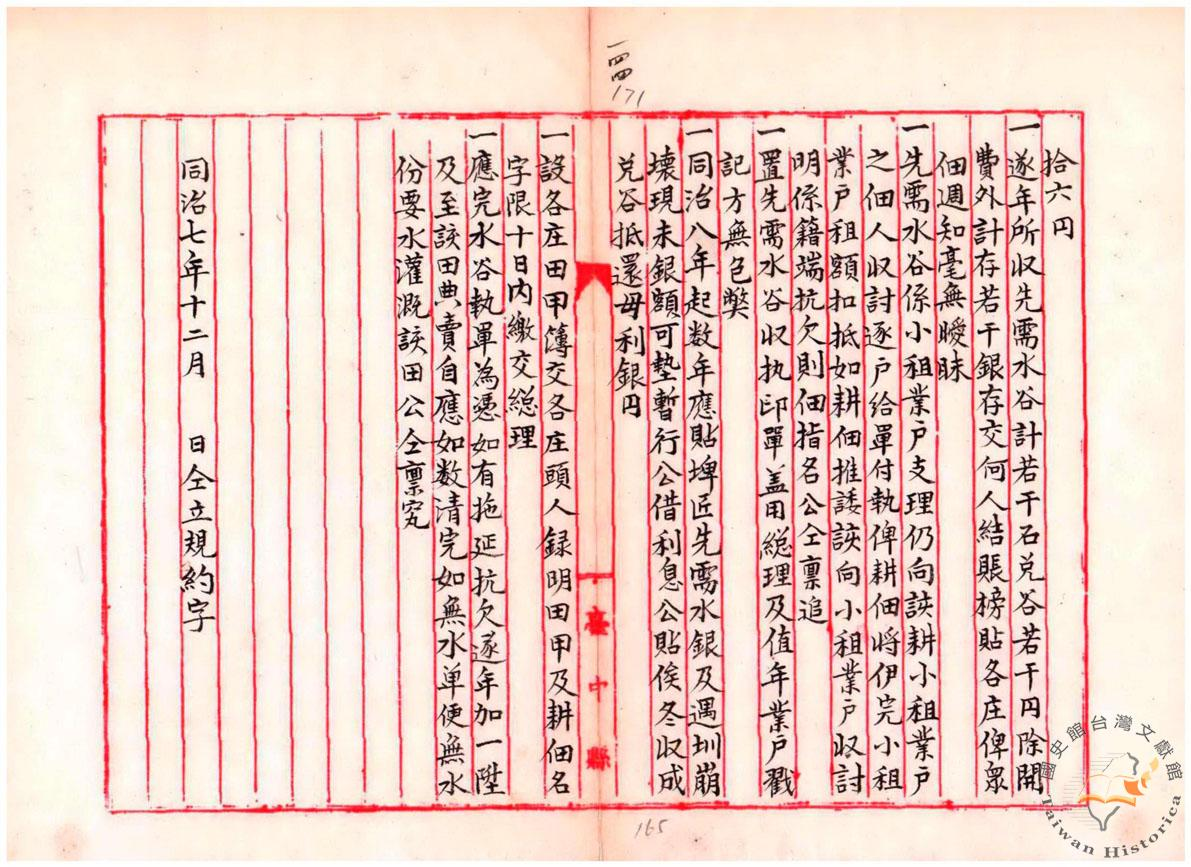 一四四
171
拾六円
一遂年所収先需水谷計若干石兌谷若干円除開
費外計存若干銀存交何人結賬榜貼各庄俾衆
佃週知毫無曖昧
一先需水谷係小租業户支理仍向該耕小租業户
之佃人収討逐户給單付執俾耕佃将伊完小租
業户租額扣抵如耕佃推諉該向小租業户収討
明係籍端抗欠則佃指名公仝禀追
一置先需水谷収执印單盖用緫理及值年業户戳
記方無包獘
一同治八年起数年應貼埤匠先需水銀及遇圳崩
壊現未銀額可墊暫行公借利息公貼俟冬収成
兌谷抵還母利銀円
臺中縣
一設各庄田甲簿交各庄頭人録明田甲及耕佃名
字限十日内繳交緫理
一應完水谷執單為憑如有拖延抗欠逐年加一陞
及至該田典賣自應如数清完如無水单便無水
份要水灌溉該田公仝禀究
同治七年十二月 日仝立規約字
165
國史館台灣文獻館
Taiwan Historica